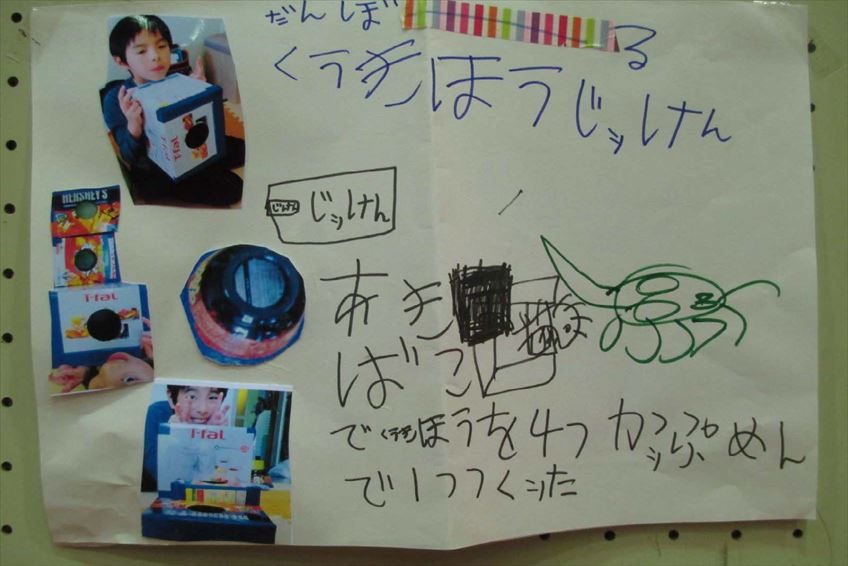 だんぼ る
くうきほうじっけん
じっけん
あき
ばこ
でくうきほうを4つ カップめん
で1つつくった
HERSHEY'S
T-fal
T-fal
T-fal